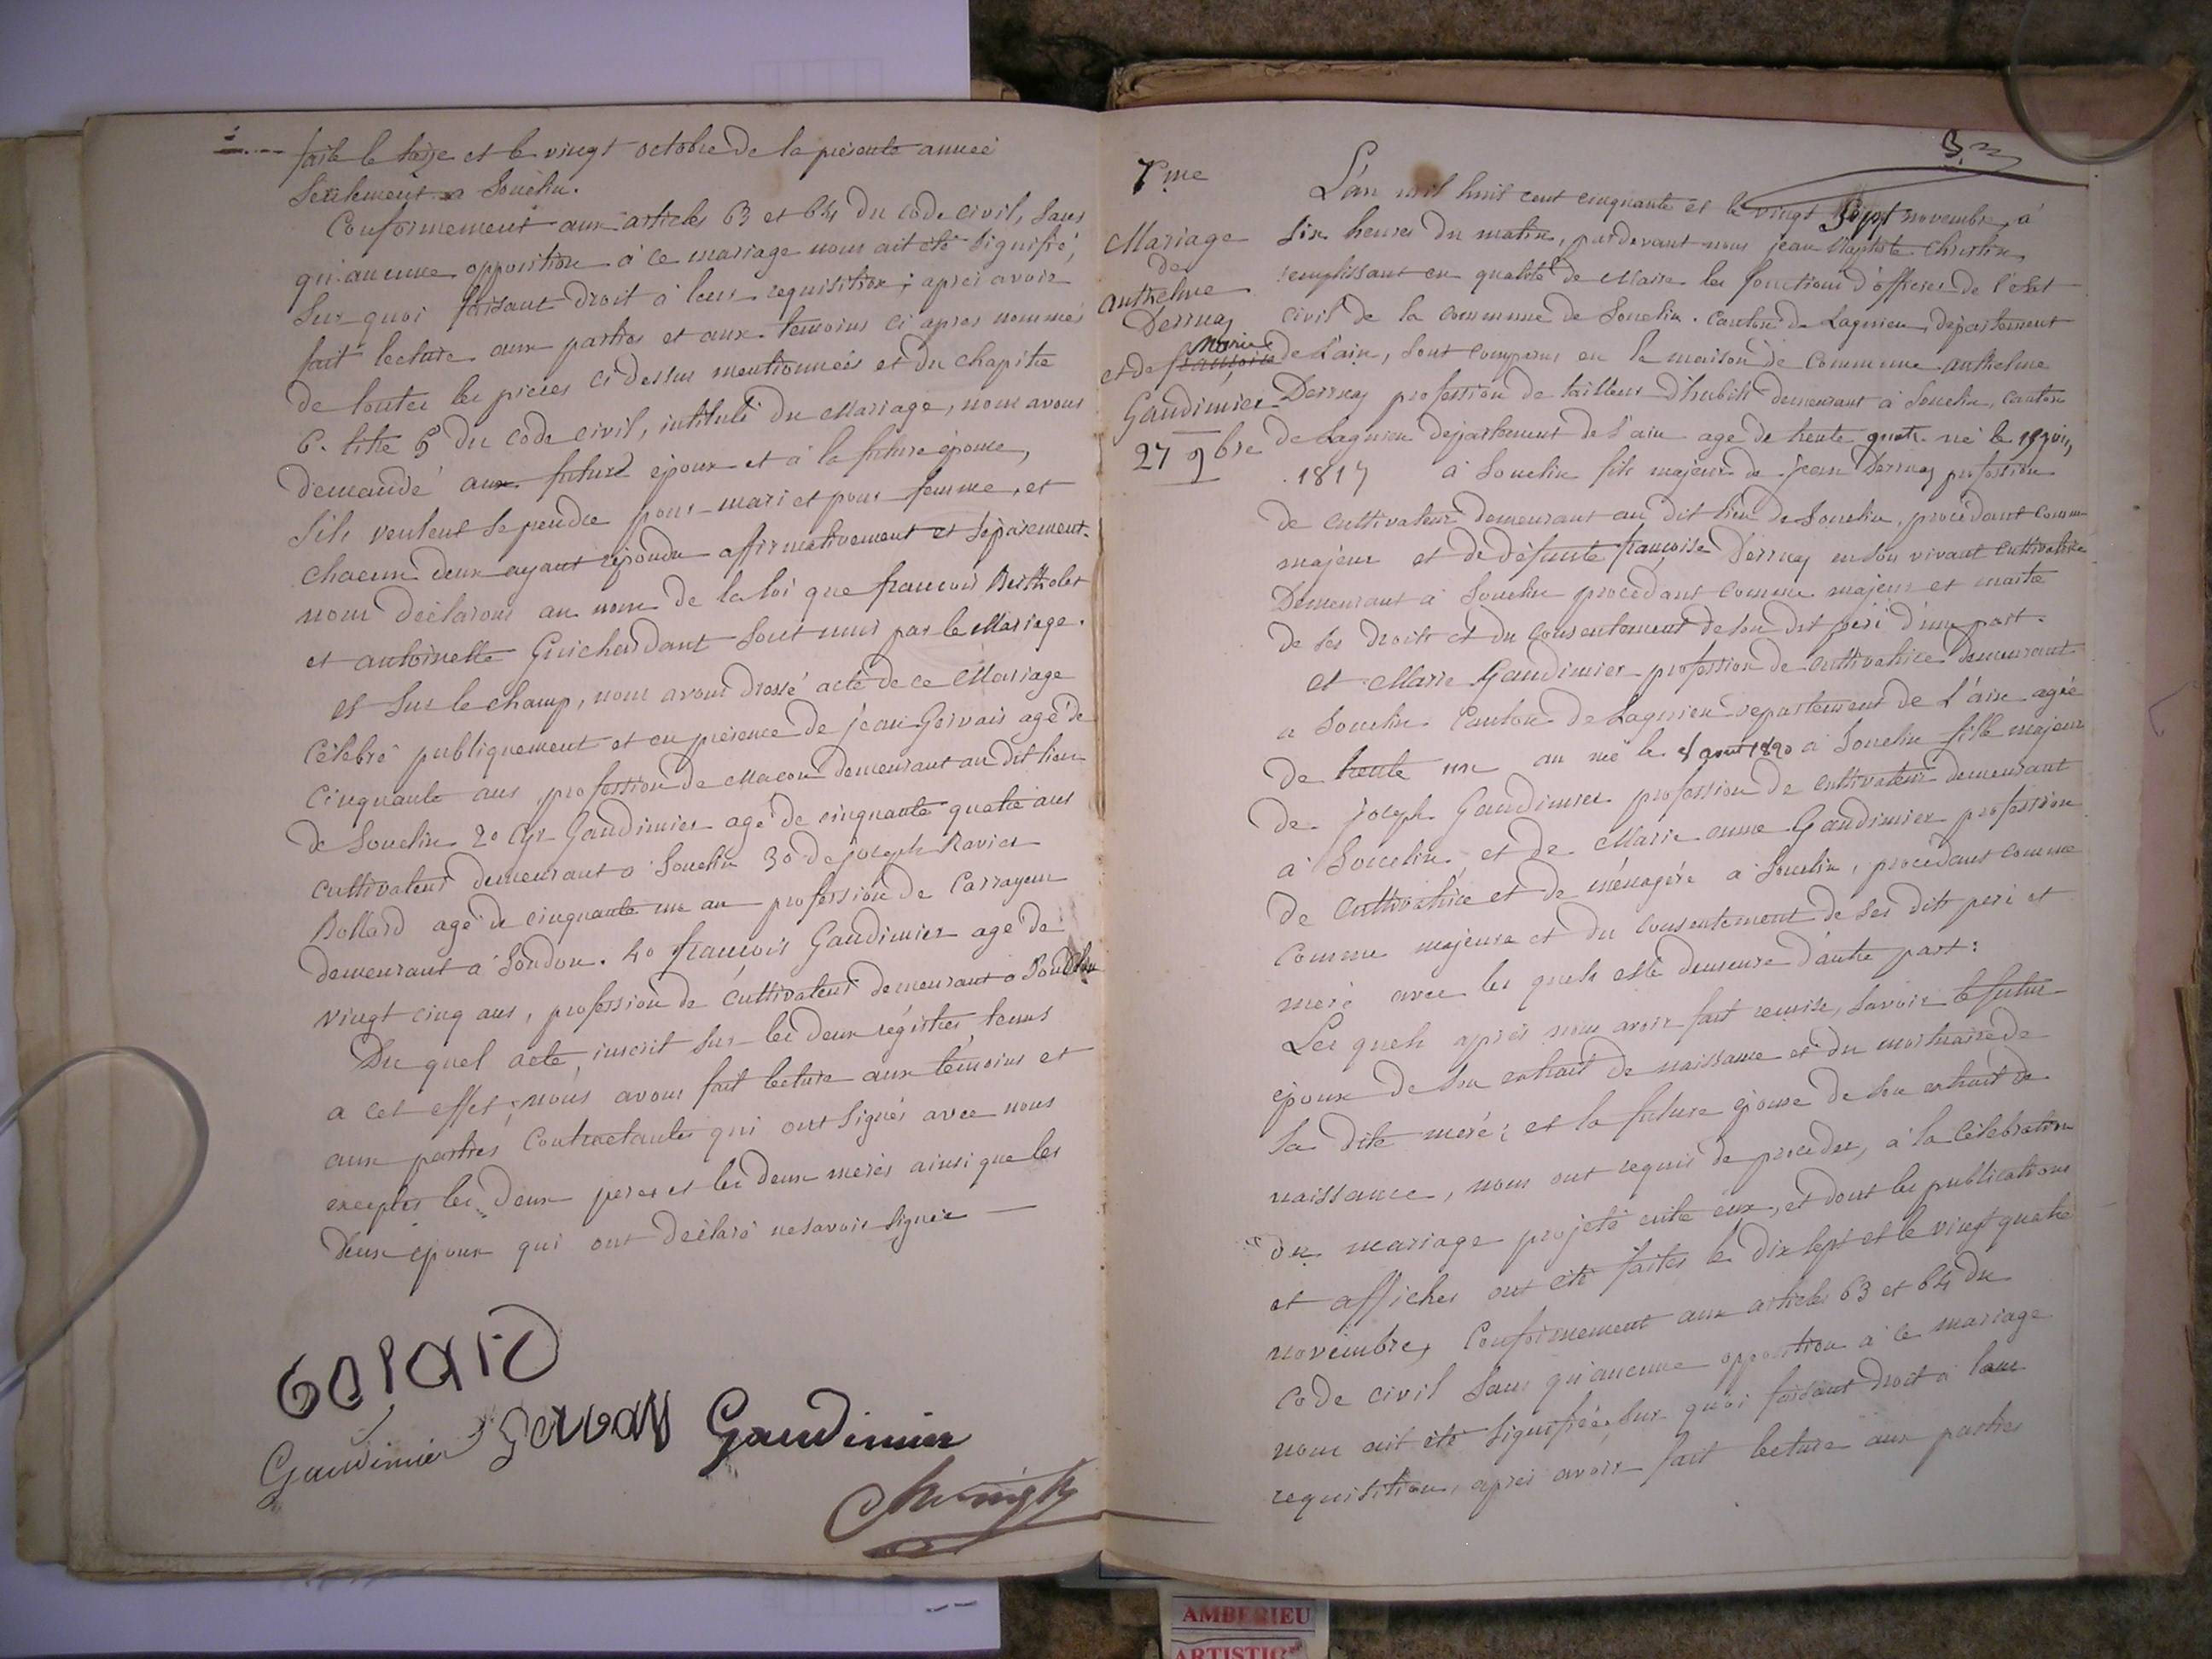 faite le treize et le vingt octobre de la présente année
seulement a Souclin.
Conformement aux articles 63 et 64 du code civil, sans
qu'aucune opposition à ce mariage nous ait été signifié,
sur quoi faisant droit à leur requisition; aprei avoir
fait lecture aux parties et aux temoins ci apres nommés
de toutes les pièces ci dessus mentionneés et du chapitre
6. titre 5 du code civil, intitulé du Mariage, nous avons
demandé aux futurs époux et à la future épouse,
s'ils veulent se prendre pour mari et pour femme, et
chacun deux ayant répondu affirmativement et séparement.
nous déclarons au nom de la loi que francois Bertholet
et antoinette Guicherdant sont unis par le Mariage.
et sur le champ, nous avons dressé acte de ce Mariage
célébré publiquement et en présence de jean Gervais agé de
cinquante ans, profession de Macon demeurant au dit lieu
de Souclin 2o Cyr Gaudimier agé de cinquante quatre ans
cultivateur demeurant a Souclin 3o de joseph Ravier
Bollard agé de cinquante un an profession de Carrayeur
demeurant à Soudon. 4o francois Gaudimier agé de
vingt cinq ans, profession de cultivateur demeurant a Souclin
Du quel acte, inscrit sur les deux régistres tenus
a cet effet; nous avons fait lecture aux témoins et
aux parties Contractantes qui ont signés avec nous
exceptés les deux peres et les deux meres ainsi que les
deux époux qui ont déclaré ne savoir signer
Gaudimier Gervais Gaudimier
3
7me
Mariage
de
anthelme
Derruaz
et de francoise Marie
Gaudimier
27 9bre
L'an mil huit cent cinquante et le vingt Sept novembre, à
six heures du matin, pardevant nous jean Baptiste
remplissant en qualité de Maire les fonctions d'officier de l'état
civil de la commune de Souclin. canton de Lagnieu, département
de l'ain, sont comparus en la maison de Commune anthelme
Derruaz profession de tailleur d'habits demeurant à Souclin, canton
de Lagnieu département de l'ain agé de trente quatre né le 19 juin,
1817 à Souclin fils majeur de jean Derruaz profession
de cultivateur demeurant au dit lieu de Souclin, procèdant comme
majeur et de défunte francoise Derruaz en son vivant cultivatrice
Demeurant à Souclin procèdant comme majeur et maitre
de ses droits et du consentement de son dit pere d'une part.
et Marie Gaudimier profession de cultivatrice demeurant
a Souclin Canton de Lagnieu département de L'ain agée
de trente un an née le 5 aout 1820 à Souclin fille majeure
de joseph Gaudimier profession de cultivateur demeurant
à Soucelin et de Marie anne Gaudimier profession
de cultivatrice et de ménagére a Souclin, procèdant comme
comme majeure et du consentement de ses dits pere et
mere avec les quels elle demeure d'autre part:
Les quels après nous avoir fait remise, savoir le futur
époux de son extrait de naissance et du mortuaire de
sa dite mere; et la future épouse de son extrait de
naissance, nous ont requis de proceder, à la célébration
du mariage projeté entre eux, et dont les publications
et affiches ont été faites le dix sept et le vingt quatre
novembre, Conformement aux articles 63 et 64 du
code civil sans qu'aucune opposition à ce mariage
nous ait été signifiée, sur quoi faisant droit à leur
requisition, aprei avoir fait lecture aux parties
AMBERIEU
ARTISTIC